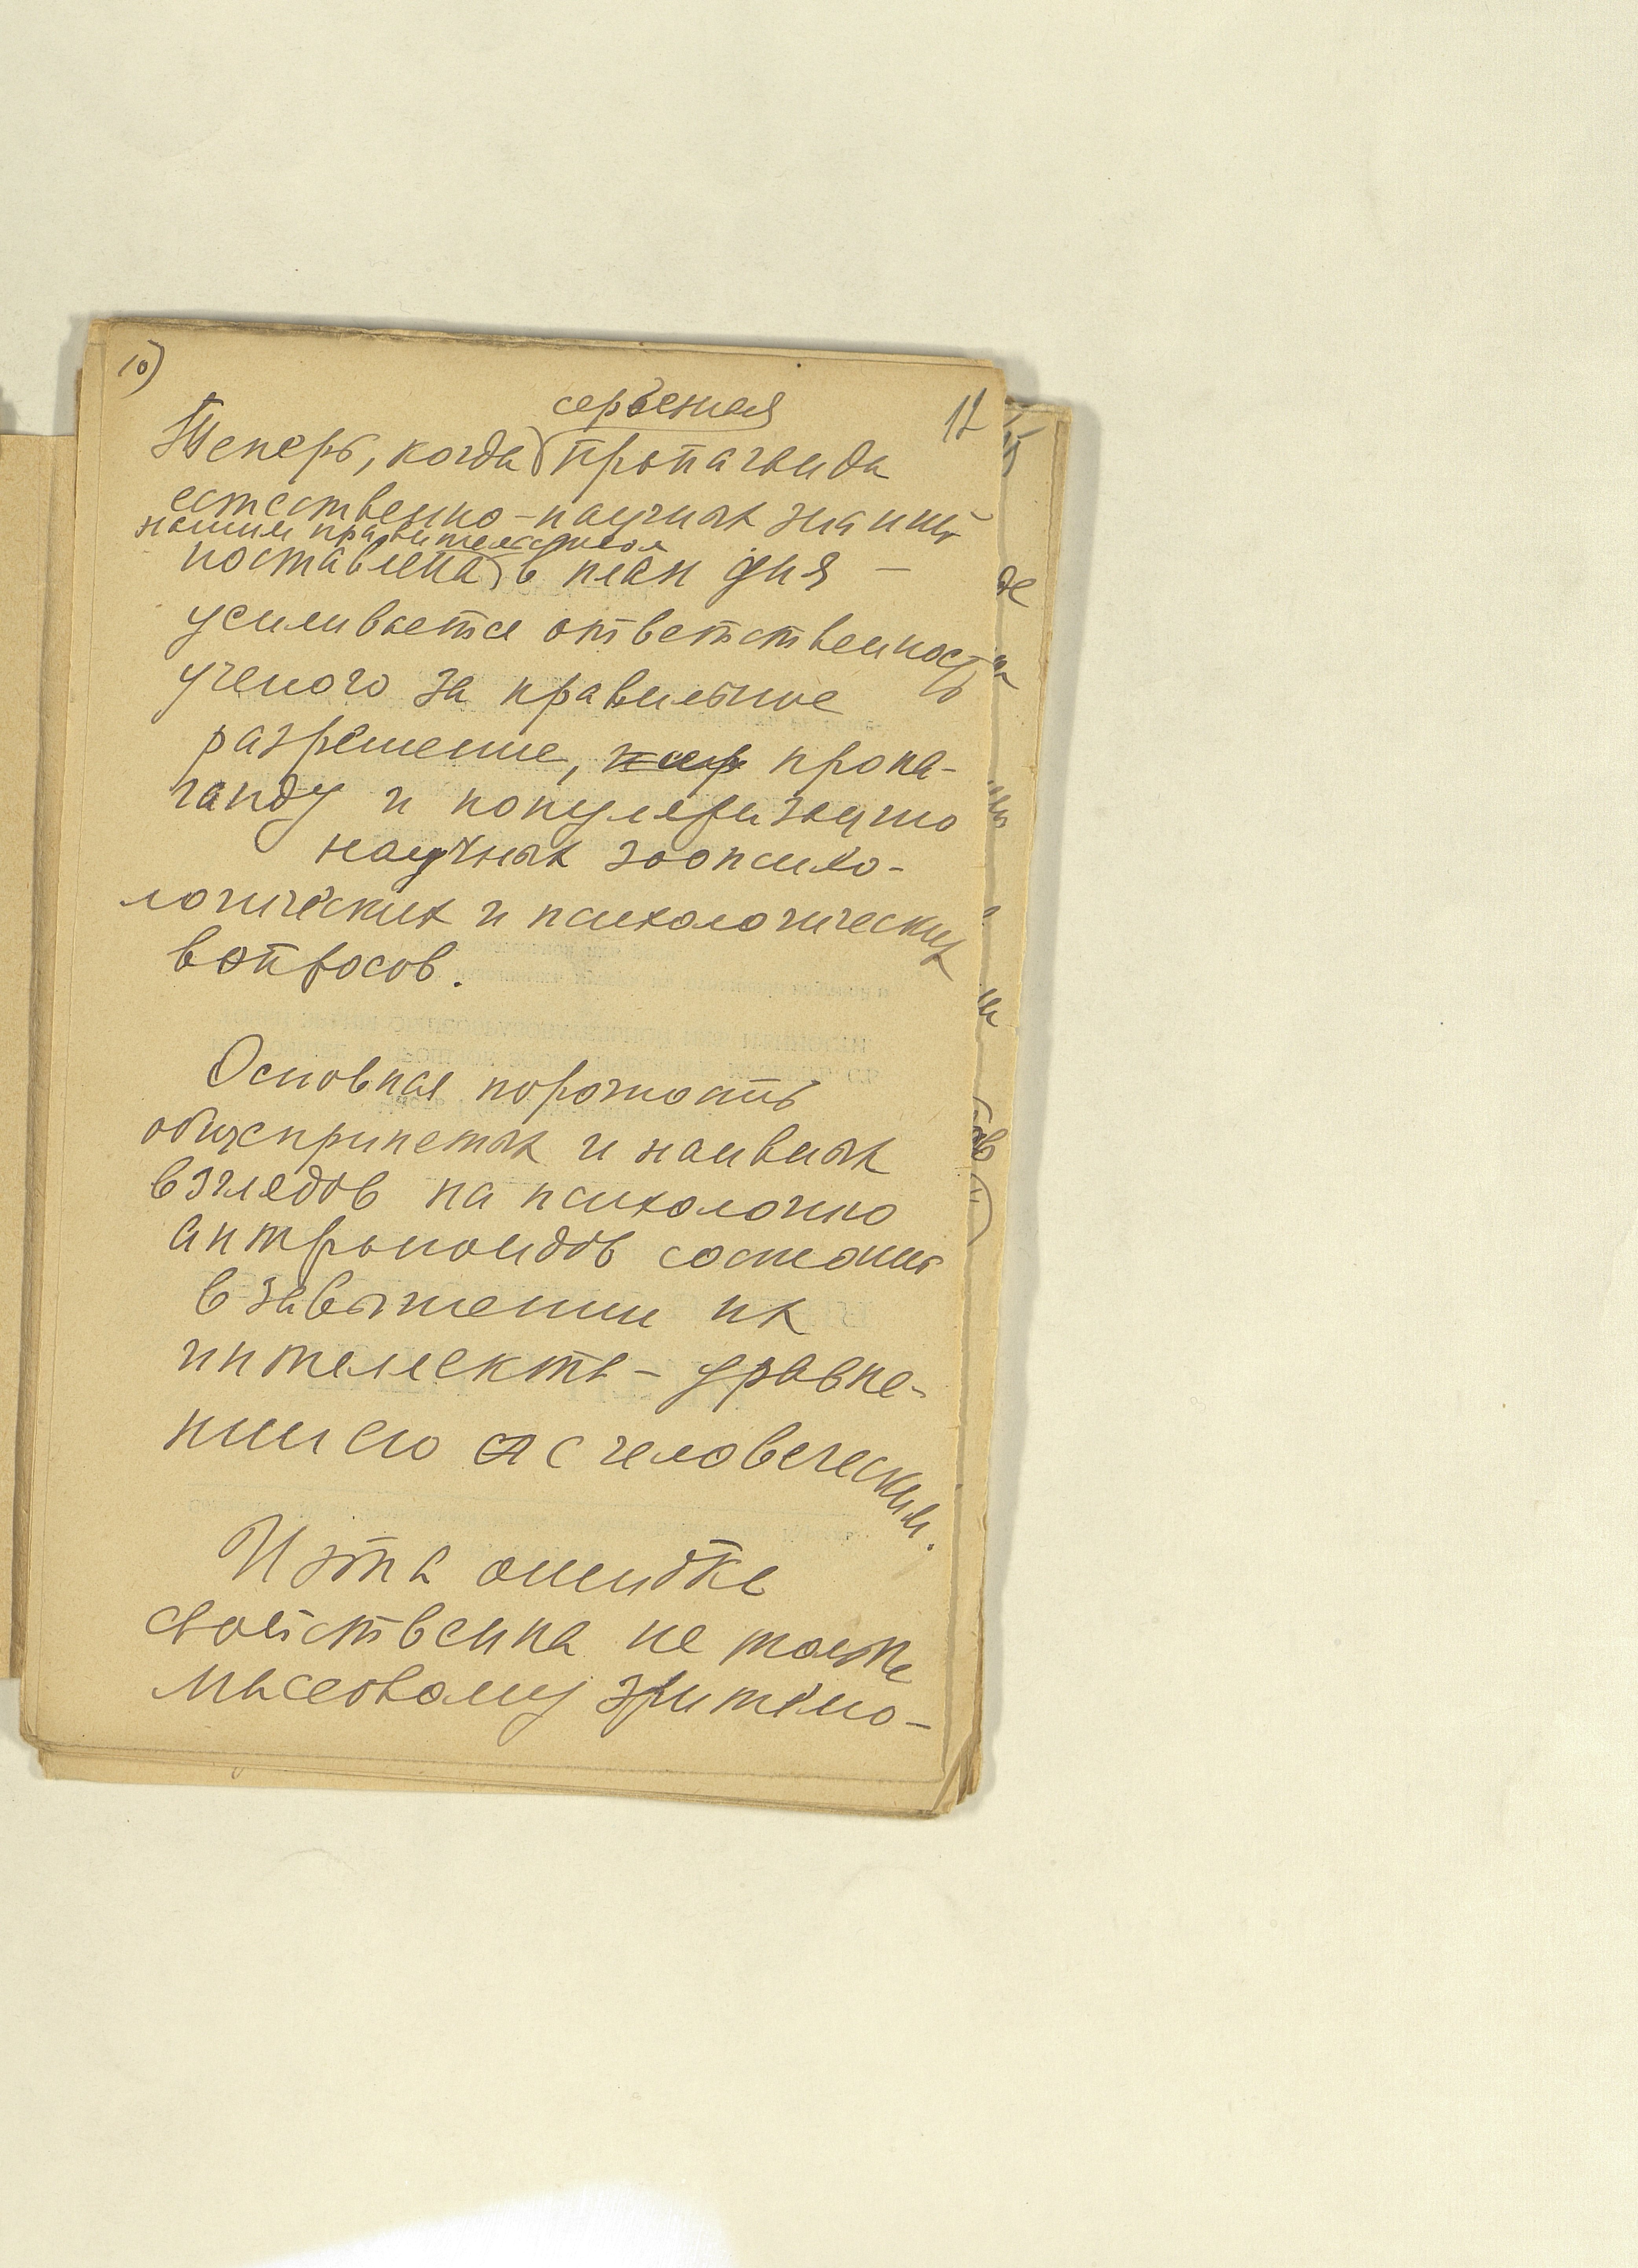 10)
12
серьезная
Теперь, когда пропаганда
естественно-научных знаний
нашим правительством
поставлена в план дня —
усиливается ответственность
ученого за правильное
разрешение, пропа-
ганду и популяризацию
научных зоопсихо-
логических и психологических
вопросов.
Основная порочность
общепринятых и наивных
взглядов на психологию
антропоидов состоит
в завышении их
интелекта - уравне-
нии его с человеческим.
И эта ошибка
свойственна не только
массовому зрителю-